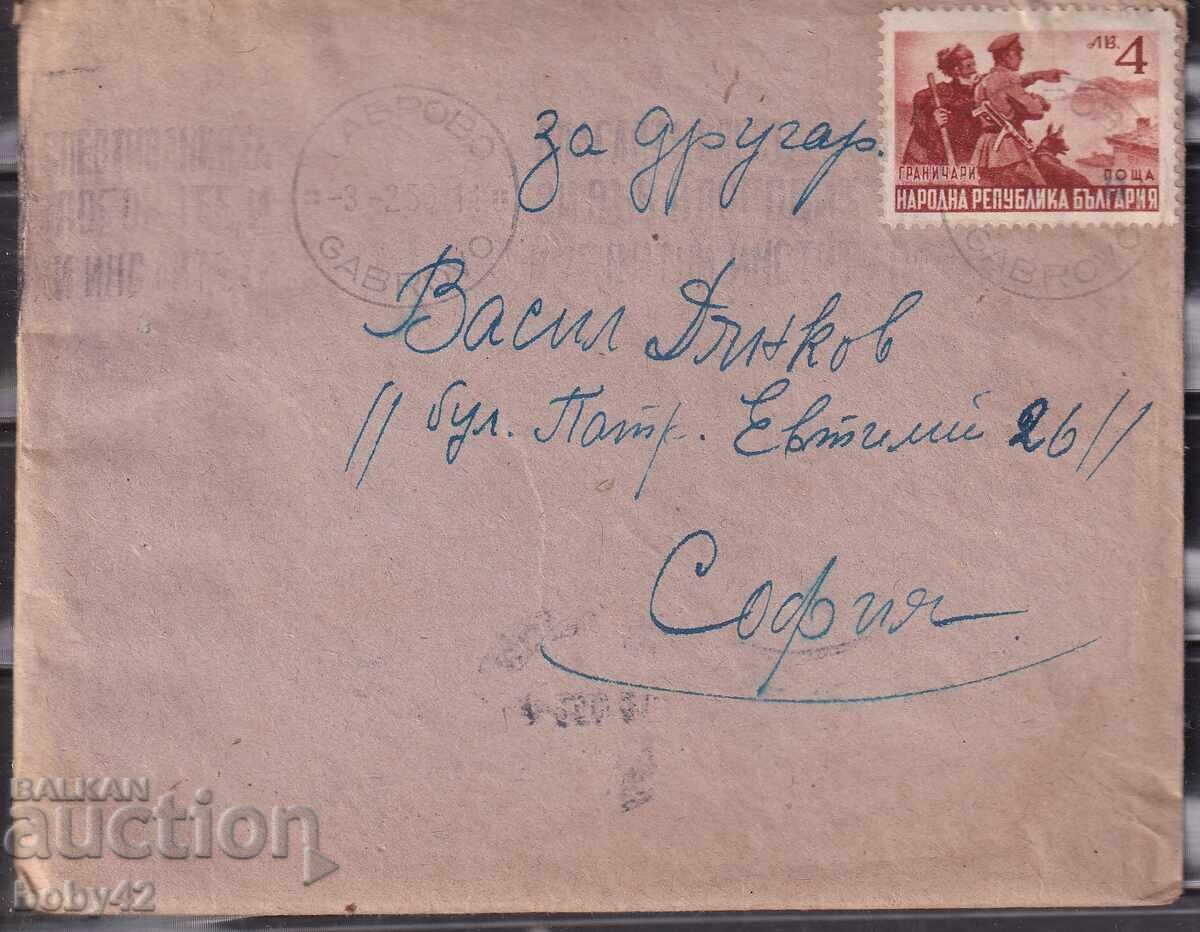 ЛВ. 4
ГРАНИЧАРИ ПОЩА
НАРОДНА РЕПУБЛИКА БЪЛГАРИЯ
GABROVO
GABROVO
за другар.
Васил Дянков
// бул. Патр. Евтимий 26 //
София
BALKAN
auction
boby42